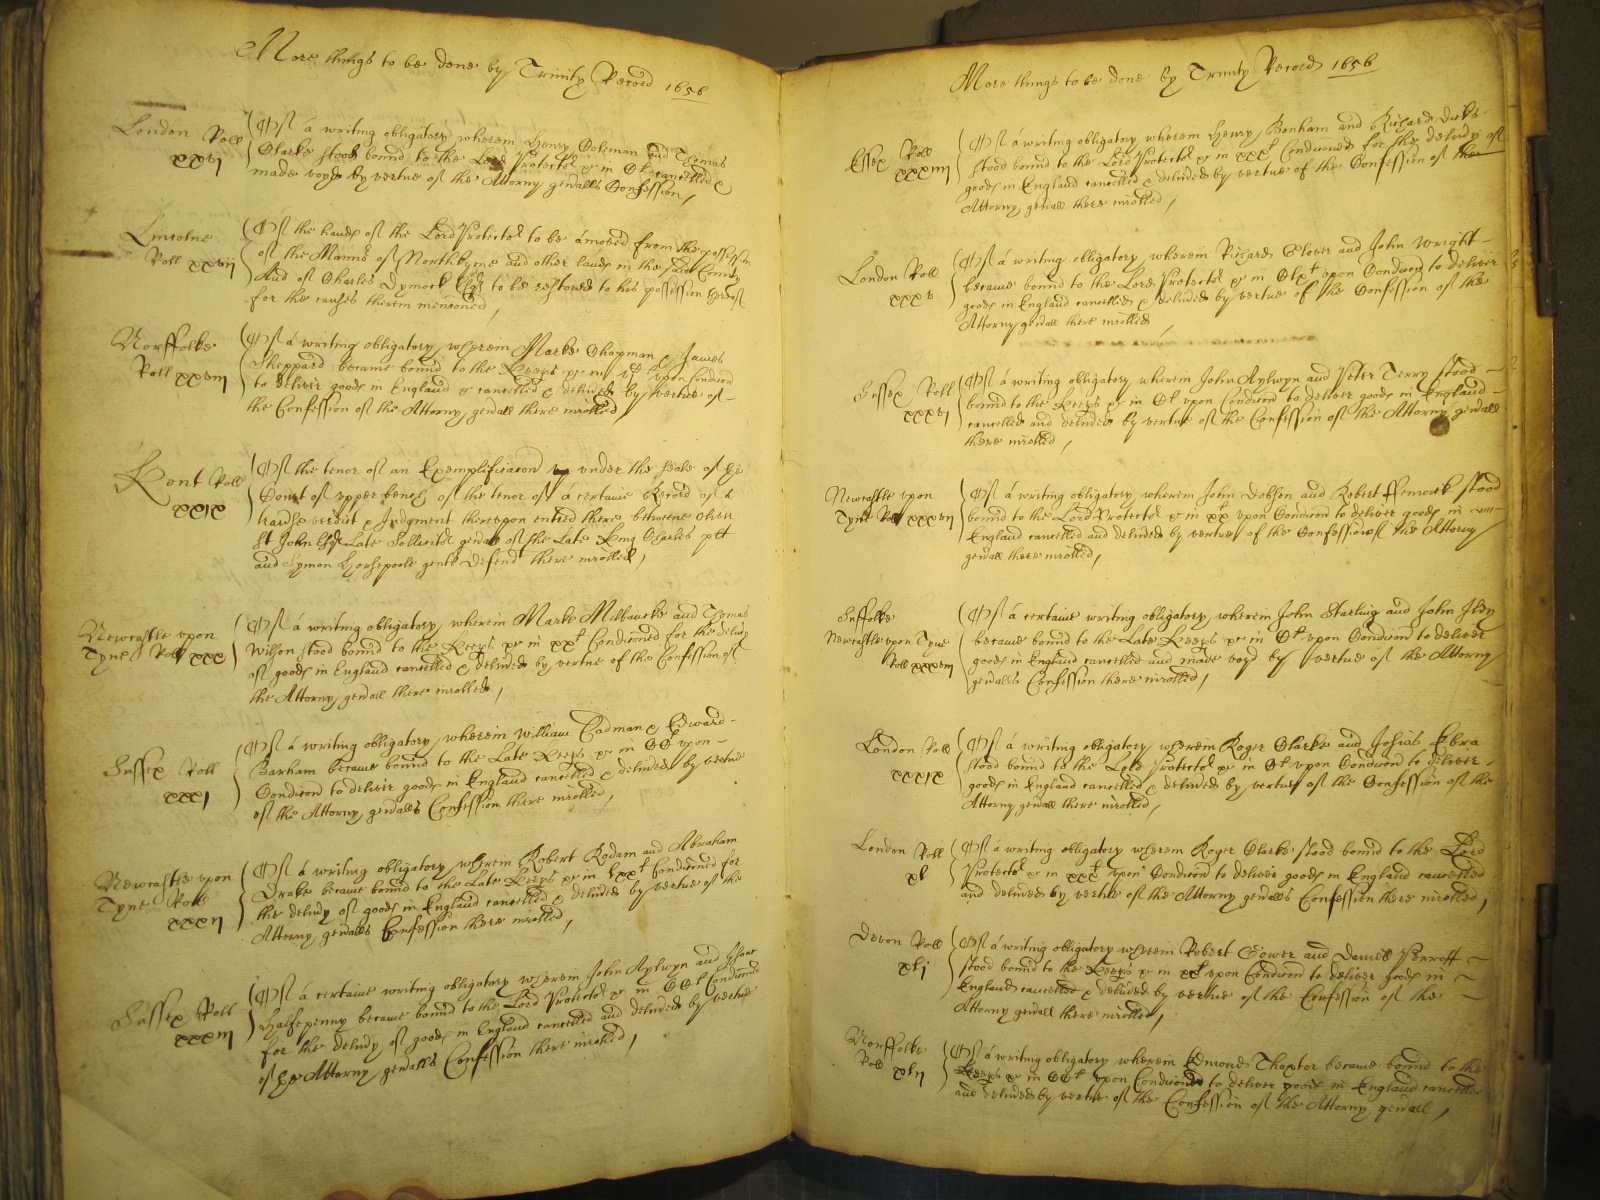 More things to be done by Trinity Record 1656
London Roll
xxvj
Of a writing obligatory wherein Henry Coleman and Thomas
Clarke stood bound to the Lord Protector &c in Cl cancelled &
made voyd by vertue of the Attorny genalls Confession,
Lincolne
Roll xxvij
Of the hands of the Lord Protector to be amoved from the possession
of the Mannor of Northkyme and other lands in the said County
And of Charles Dymock Esqr to be restored to his possession thereof
for the causes therein mencioned,
Norffolke
Roll xxviij
Of a writing obligatory wherein Marke Chapman & James
Sheppard became bound to the Keeps &c in upon Condicon
to deliver goods in England & cancelled & delived by vertue of
the Confession of the Attorny genall there inrolled
Kent Roll
xxix
Of the tenor of an Exemplificacon under the seale of the
Court of upper bench of the tenor of a certaine Record of a
verdict & Judgment thereupon entred there betweene Oliver
St John Esqr Late Sollicitor genall of the Late King Charles plt
and Symon Horsepoole gent Defend there inrolled,
Newcastle upon
Tyne Roll xxx
Of a writing obligatory wherein Marke Milbancke and Thomas
Wilson stood bound to the Keeps &c in xxl Condiconed for the delivy
of goods in England cancelled & delived by vertue of the Confession of
the Attorny genall there inrolled,
Sussex Roll
xxxj
Of a writing obligatory wherein William Cadman & Edward
Barham became bound to the Late Keeps &c in CCl upon
Condicon to deliver goods in England cancelled & delived by vertue
of the Attorny genalls Confession there inrolled,
Newcastle upon
Tyne Roll
xxxij
Of a writing obligatory wherein Robert Rodam and Abraham
Drake became bound to the Late Keeps &c in lxxl Condiconed for
the delivy of goods in England cancelled & delived by vertue of the
Attorny genalls Confession there inrolled,
Sussex Roll
xxxiij
Of a certaine writing obligatory wherein John Aylwyn and Isaac
Halfepenny became bound to the Lord Protector &c in CCl Condiconed
for the delivy of goods in England cancelled and delived by vertue
of the Attorny genalls Confession there inrolled,
More things to be done by Trinity Record 1656
Essex Roll
xxxiiij
Of a writing obligatory wherein Henry Bonham and Richard
stood bound to the Lord Protector &c in xxxl Condiconed for the delivy of
goods in England cancelled & delived by vertue of the Confession of the
Attorny genall there inrolled,
London Roll
xxxv
Of a writing obligatory wherein Richard Glover and John Wright
became bound to the Lord Protector &c in Clxl upon Condicon to deliver
goods in England cancelled & delived by vertue of the Confession of the
Attorny genall there inrolled,
Sussex Roll
xxxvj
Of a writing obligatory wherein John Aylwyn and Peter Terry stood
bound to the Keeps &c in Cl upon Condicon to deliver goods in England
cancelled and delived by vertue of the Confession of the Attorny genall
there inrolled,
Newcastle upon
Tyne Roll xxxvij
Of a writing obligatory wherein John Dobson and Robert Ffenwick stood
bound to the Lord Protector &c in xxl upon Condicon to deliver goods in
England cancelled and delived by vertue of the Confession of the Attorny
genall there inrolled,
Suffolke
Newcastle upon Tyne
Roll xxxviij
Of a certaine writing obligatory wherein John Starling and John
became bound to the Late Keeps &c in Cl upon Condicon to deliver
goods in England cancelled and made voyd by vertue of the Attorny
genalls Confession there inrolled,
London Roll
xxxix
Of a writing obligatory wherein Roger Clarke and Josias Ebra
stood bound to the Lord Protector &c in Cl upon Condicon to deliver
goods in England cancelled & delived by vertue of the Confession of the
Attorny genall there inrolled,
London Roll
xl
Of a writing obligatory wherein Roger Clarke stood bound to the Lord
Protector &c in xxxl upon Condicon to deliver goods in England cancelled
and delived by vertue of the Attorny genalls Confession there inrolled,
Devon Roll
xlj
Of a writing obligatory wherein Robert Gower and Daniell Perrott
stood bound to the Keeps &c in xll upon Condicon to deliver goods in
England cancelled & delived by vertue of the Confession of the
Attorny genall there inrolled,
Norffolke
Roll xlij
Of a writing obligatory wherein Edmond Thaxtor became bound to the
Keeps &c in CCl upon Condicon to deliver goods in England cancelled
and delived by vertue of the Confession of the Attorny genall,